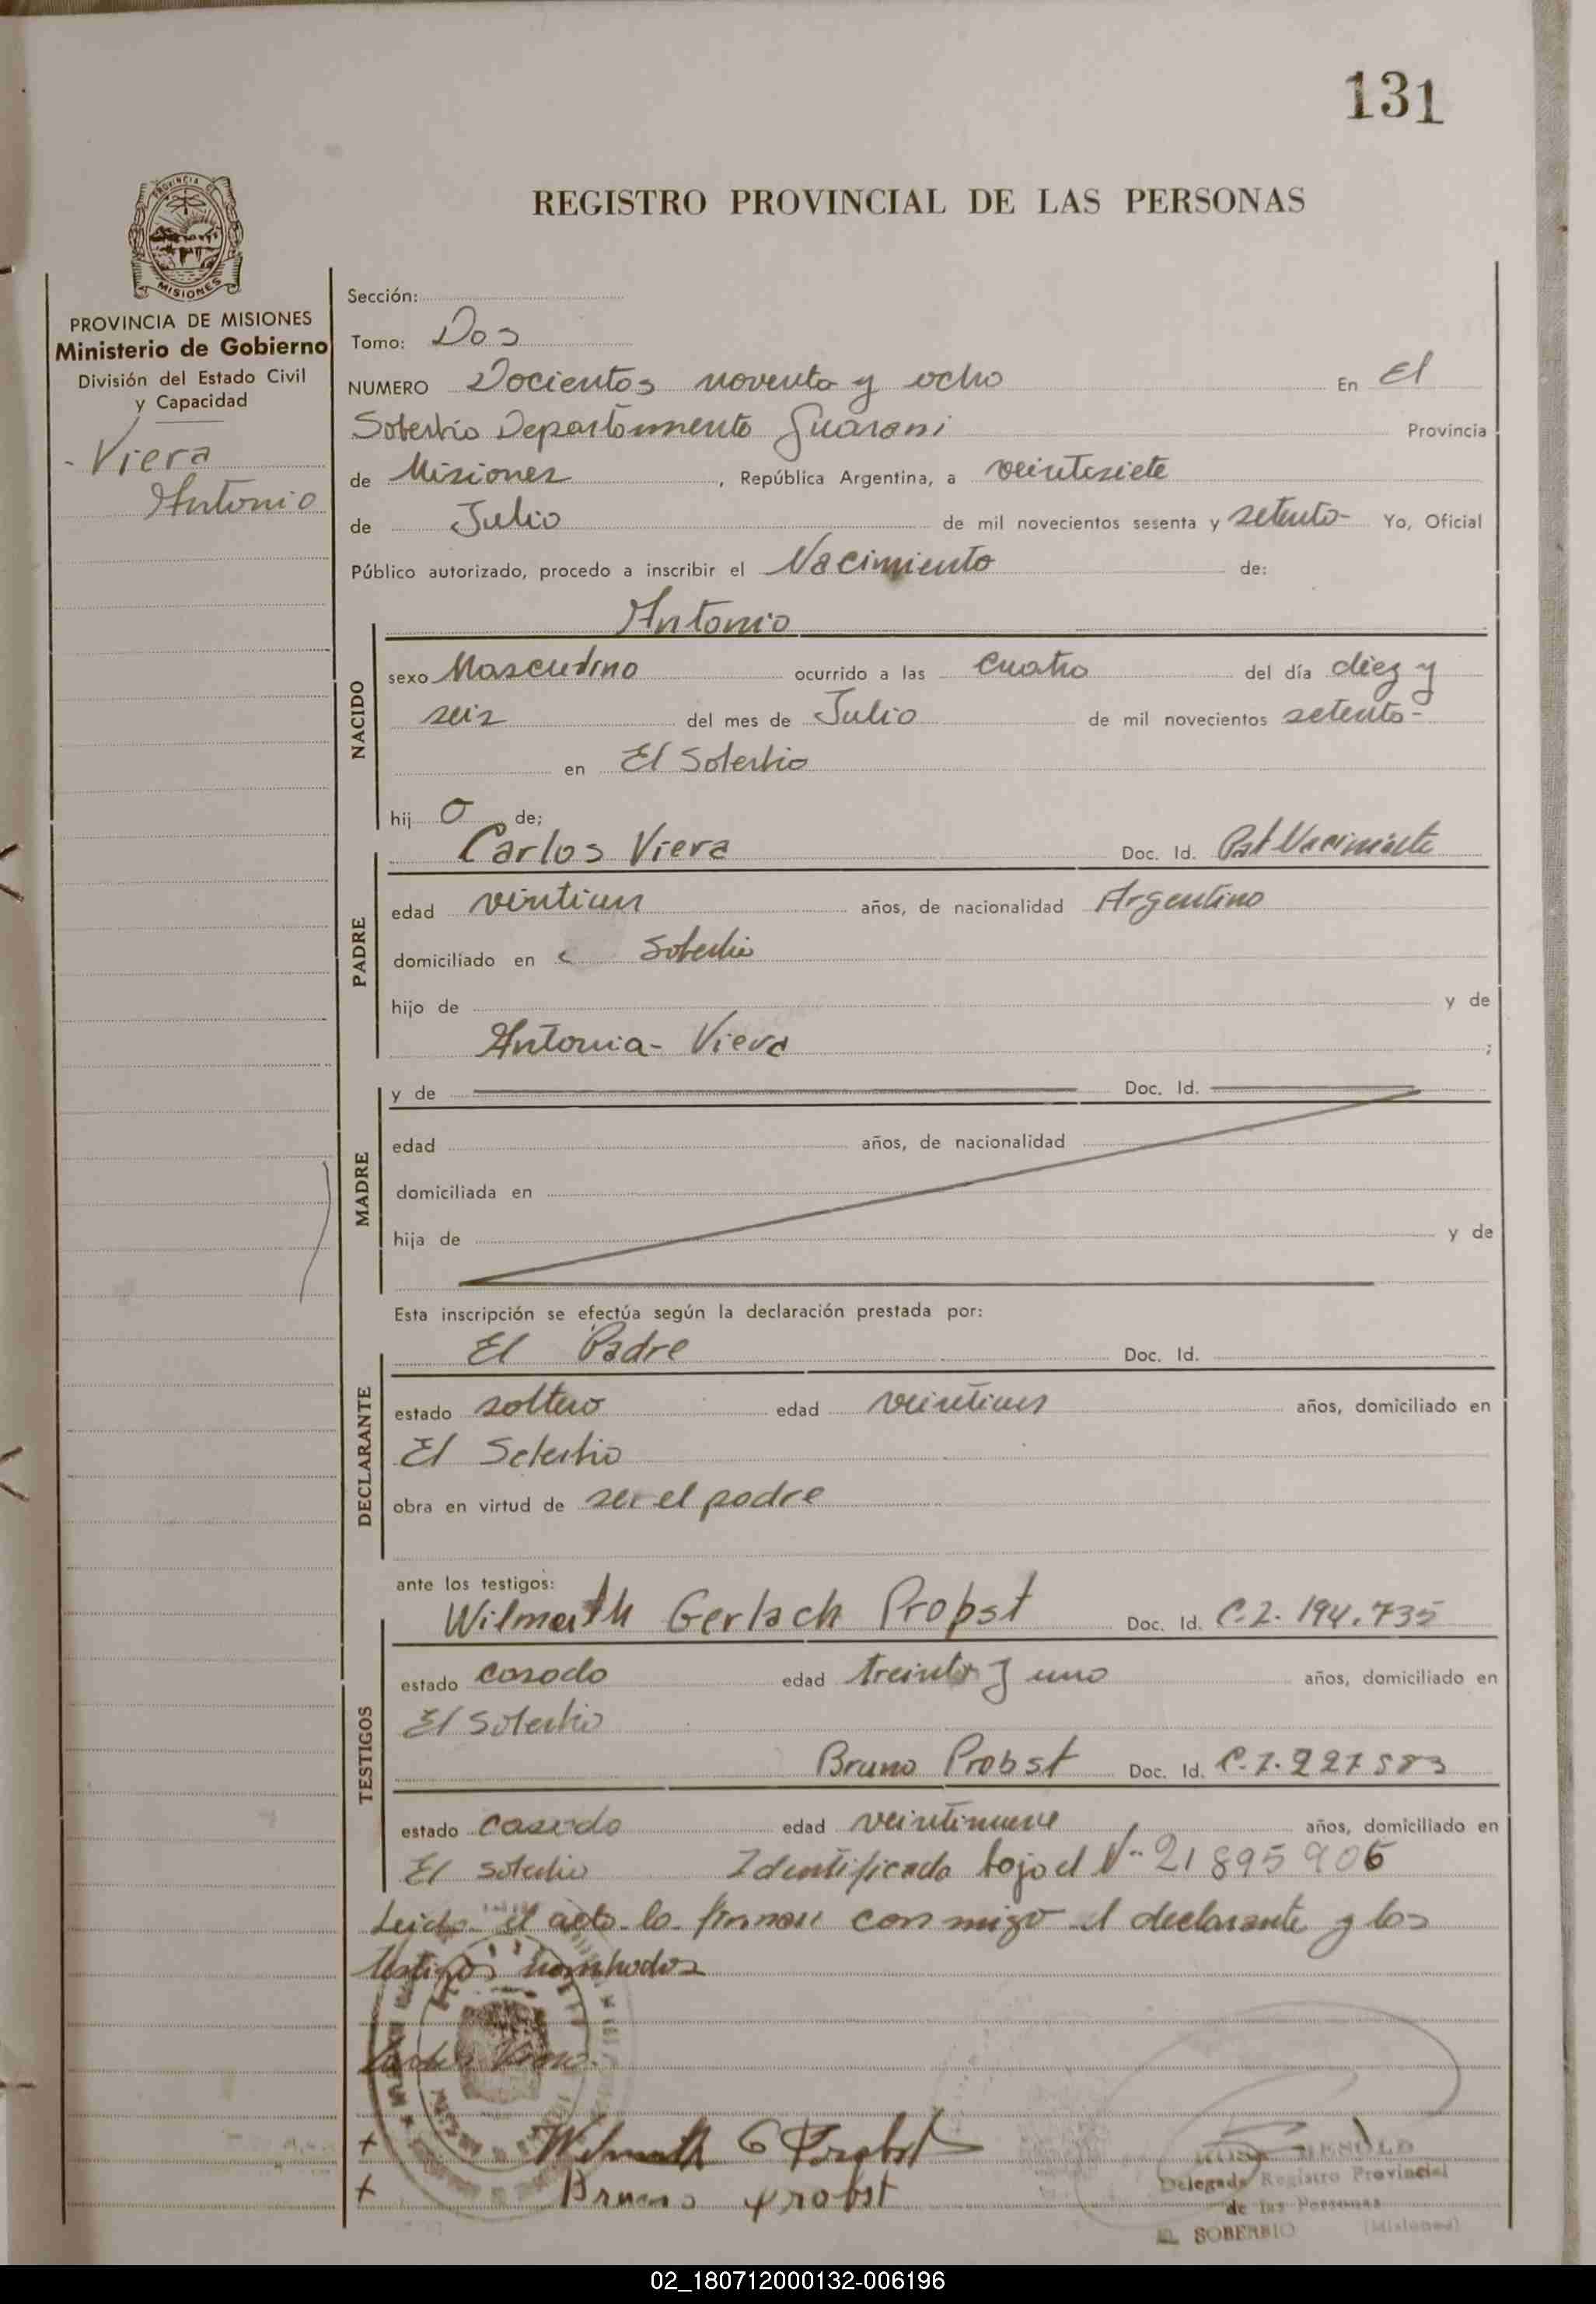 131
REGISTRO PROVINCIAL DE LAS PERSONAS
PROVINCIA DE
MISIONES
PROVINCIA DE MISIONES
Ministerio de Gobierno
División del Estado Civil
y Capacidad
- Viera
Antonio
Sección:
Tomo: Dos
NUMERO Docientos noventa y ocho En El
Soberbio Departamento Guarani Provincia
de Misiones, República Argentina, a veintisiete
de Julio de mil novecientos sesenta y setenta- Yo, Oficial
Público autorizado, procedo a inscribir el Nacimiento de:
Antonio
NACIDO
sexo Masculino ocurrido a las cuatro del día diez y
seis del mes de Julio de mil novecientos setenta-
en El Soberbio
hij o de;
Carlos Viera Doc. Id.
PADRE
edad vintiun años, de nacionalidad Argentino
domiciliado en Soberbio
hijo de y de
Antonia- Viera ;
MADRE
y de Doc. Id.
edad años, de nacionalidad
domiciliada en
hija de y de
Esta inscripción se efectúa según la declaración prestada por:
El Padre Doc. Id.
DECLARANTE
estado soltero edad veintiun años, domiciliado en
El Soberbio
obra en virtud de ser el padre
ante los testigos:
Wilmuth Gerlach Probst Doc. Id. C.I. 194.735
TESTIGOS
estado casado edad treinta y uno años, domiciliado en
El Soberbio
Bruno Probst Doc. Id. C.I. 227583
estado casado edad veintinueve años, domiciliado en
El soberbio Identificado bajo el Nº 21895906
Leida el acta la firman con migo el declarante y los
testigos nombrados
Carlos Viera
+ Wilmuth G Probst
+ Bruno Probst
Delegado Registro Provincial
de las Personas
EL SOBERBIO (Misiones)
02_180712000132-006196